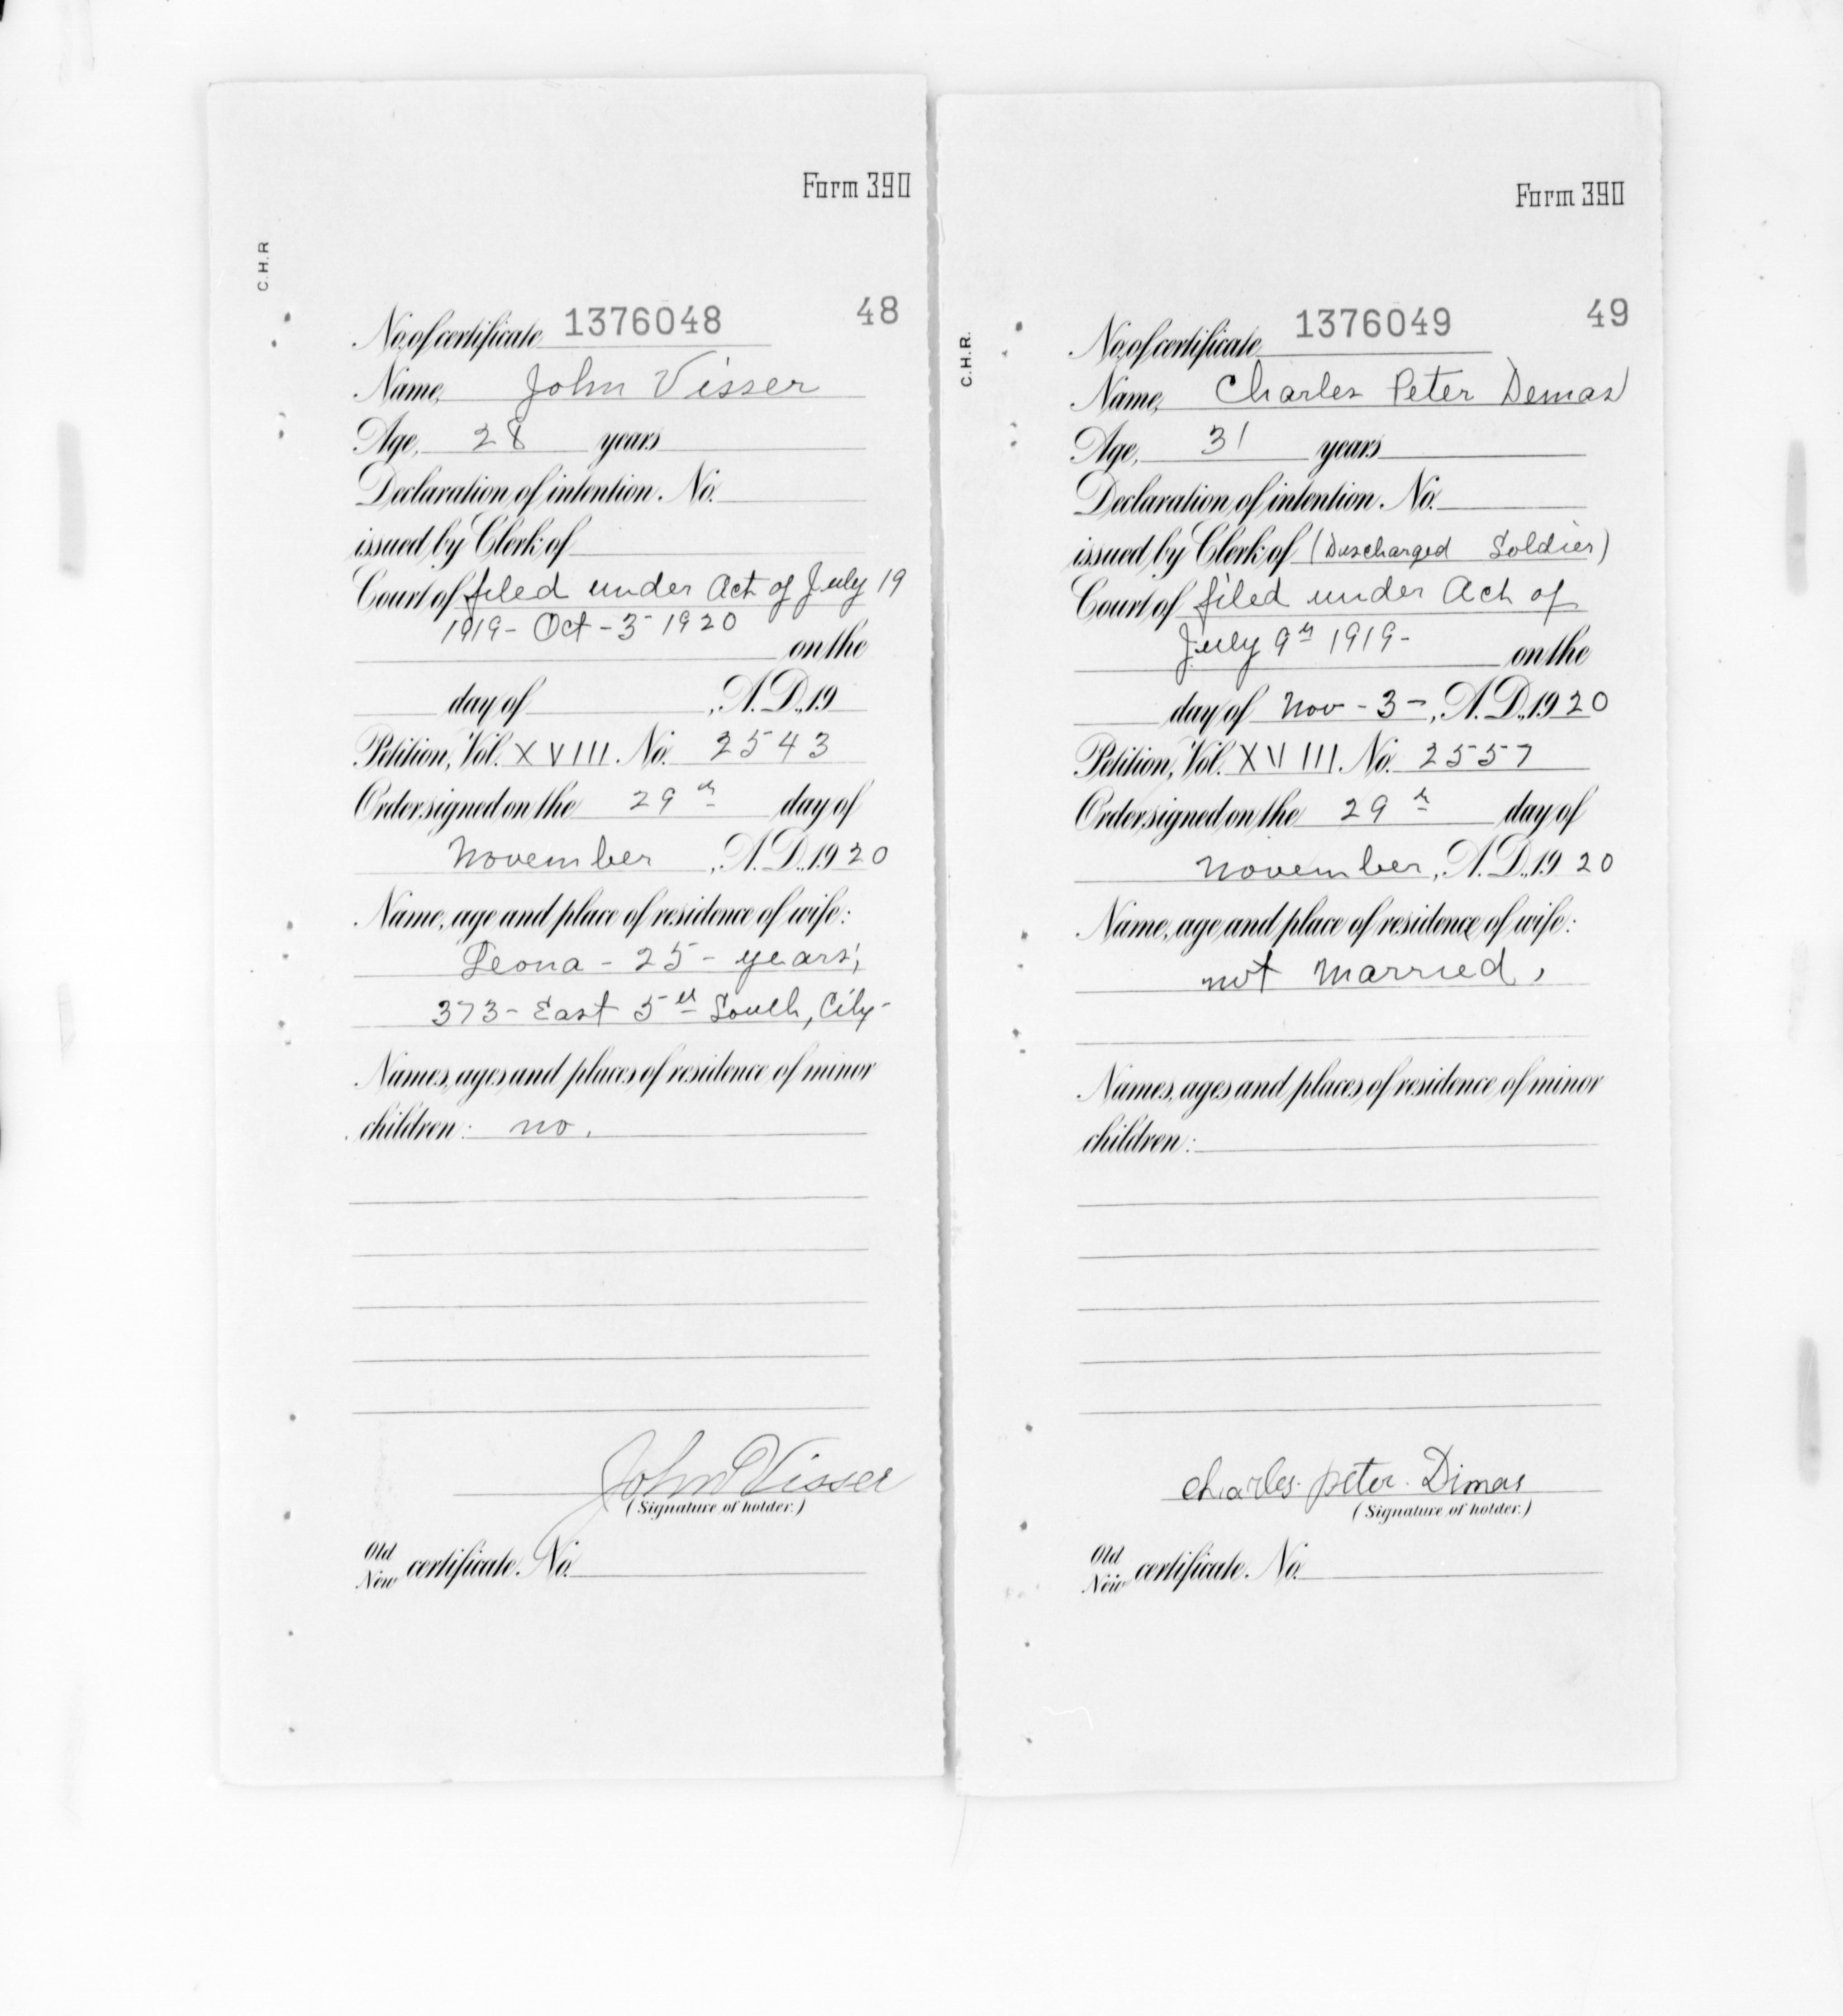 Form 390
C.H.R
48
No. of certificate 1376048
Name, John Visser
Age, 28 years
Declaration of intention. No.
issued by Clerk of
Court of filed under Act of July 19
1919 - Oct - 3 - 1920
on the
day of , A.D., 19
Petition, Vol. XVIII. No. 2543
Order signed on the 29th day of
November , A.D., 1920
Name, age and place of residence of wife:
Leona - 25 - years,
373 - East 5th South, City -
Names, ages and places of residence of minor
children: no.
John Visser
(Signature of holder.)
Old
New certificate. No.
Form 390
C.H.R.
49
No. of certificate 1376049
Name, Charles Peter Demas
Age, 31 years
Declaration of intention. No.
issued by Clerk of (Discharged Soldier)
Court of filed under Act of
July 9th 1919 -
on the
day of Nov - 3 - , A.D., 1920
Petition, Vol. XVIII. No. 2557
Order signed on the 29th day of
November, A.D., 1920
Name, age and place of residence of wife:
not married,
Names, ages and places of residence of minor
children:
Charles. peter. Dimas
(Signature of holder.)
Old
New certificate. No.